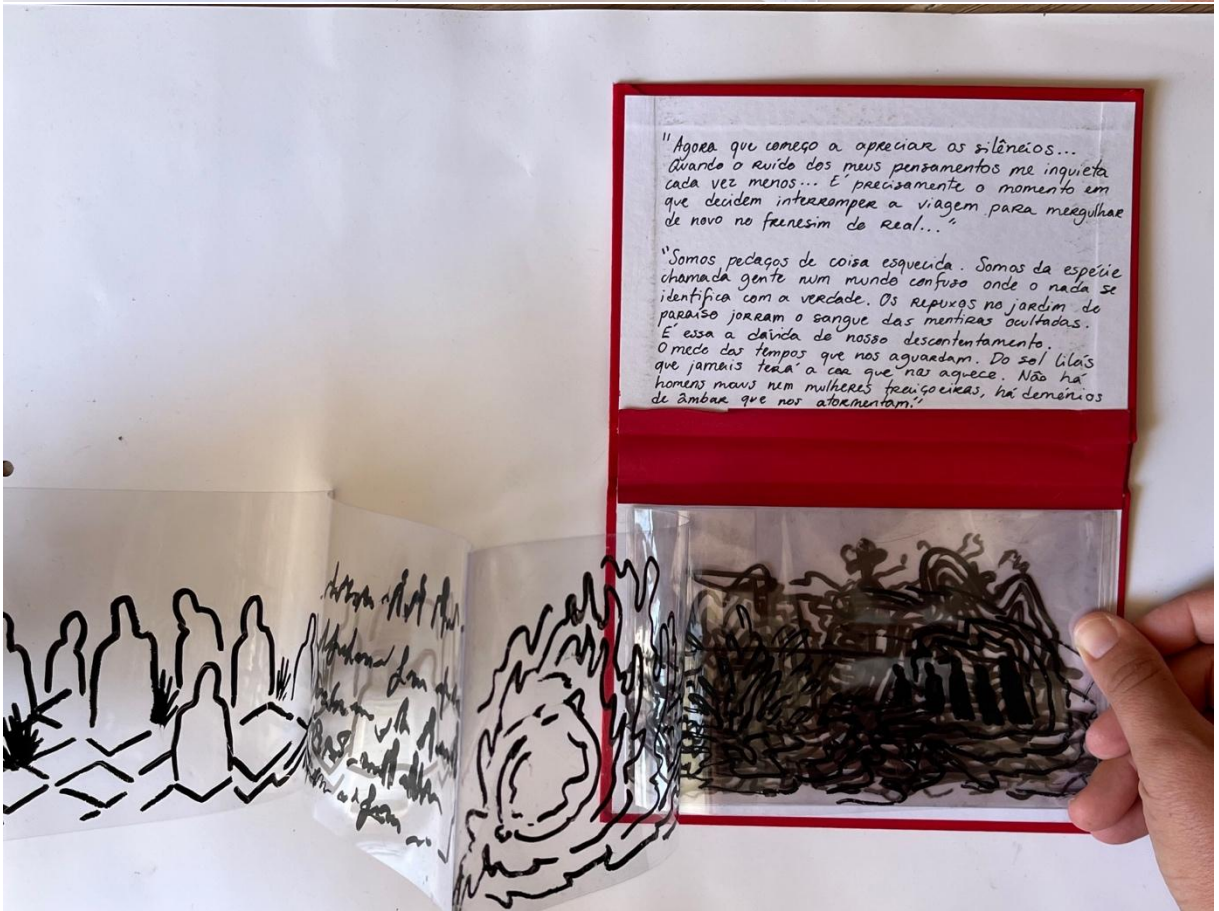 "Agora que começo a apreciar os silêncios...
Quando o ruído dos meus pensamentos me inquieta
cada vez menos... É precisamente o momento em
que decidem interromper a viagem para mergulhar
de novo no frenesim do real..."
"Somos pedaços de coisa esquecida. Somos da espécie
chamada gente num mundo confuso onde o nada se
identifica com a verdade. Os repuxos no jardim do
paraíso jorram o sangue das mentiras ocultadas.
É essa a dávida de nosso descontentamento.
O medo dos tempos que nos aguardam. Do sol lilás
que jamais terá a cor que nos aquece. Não há
homens maus nem mulheres traiçoeiras, há demónios
de âmbar que nos atormentam."